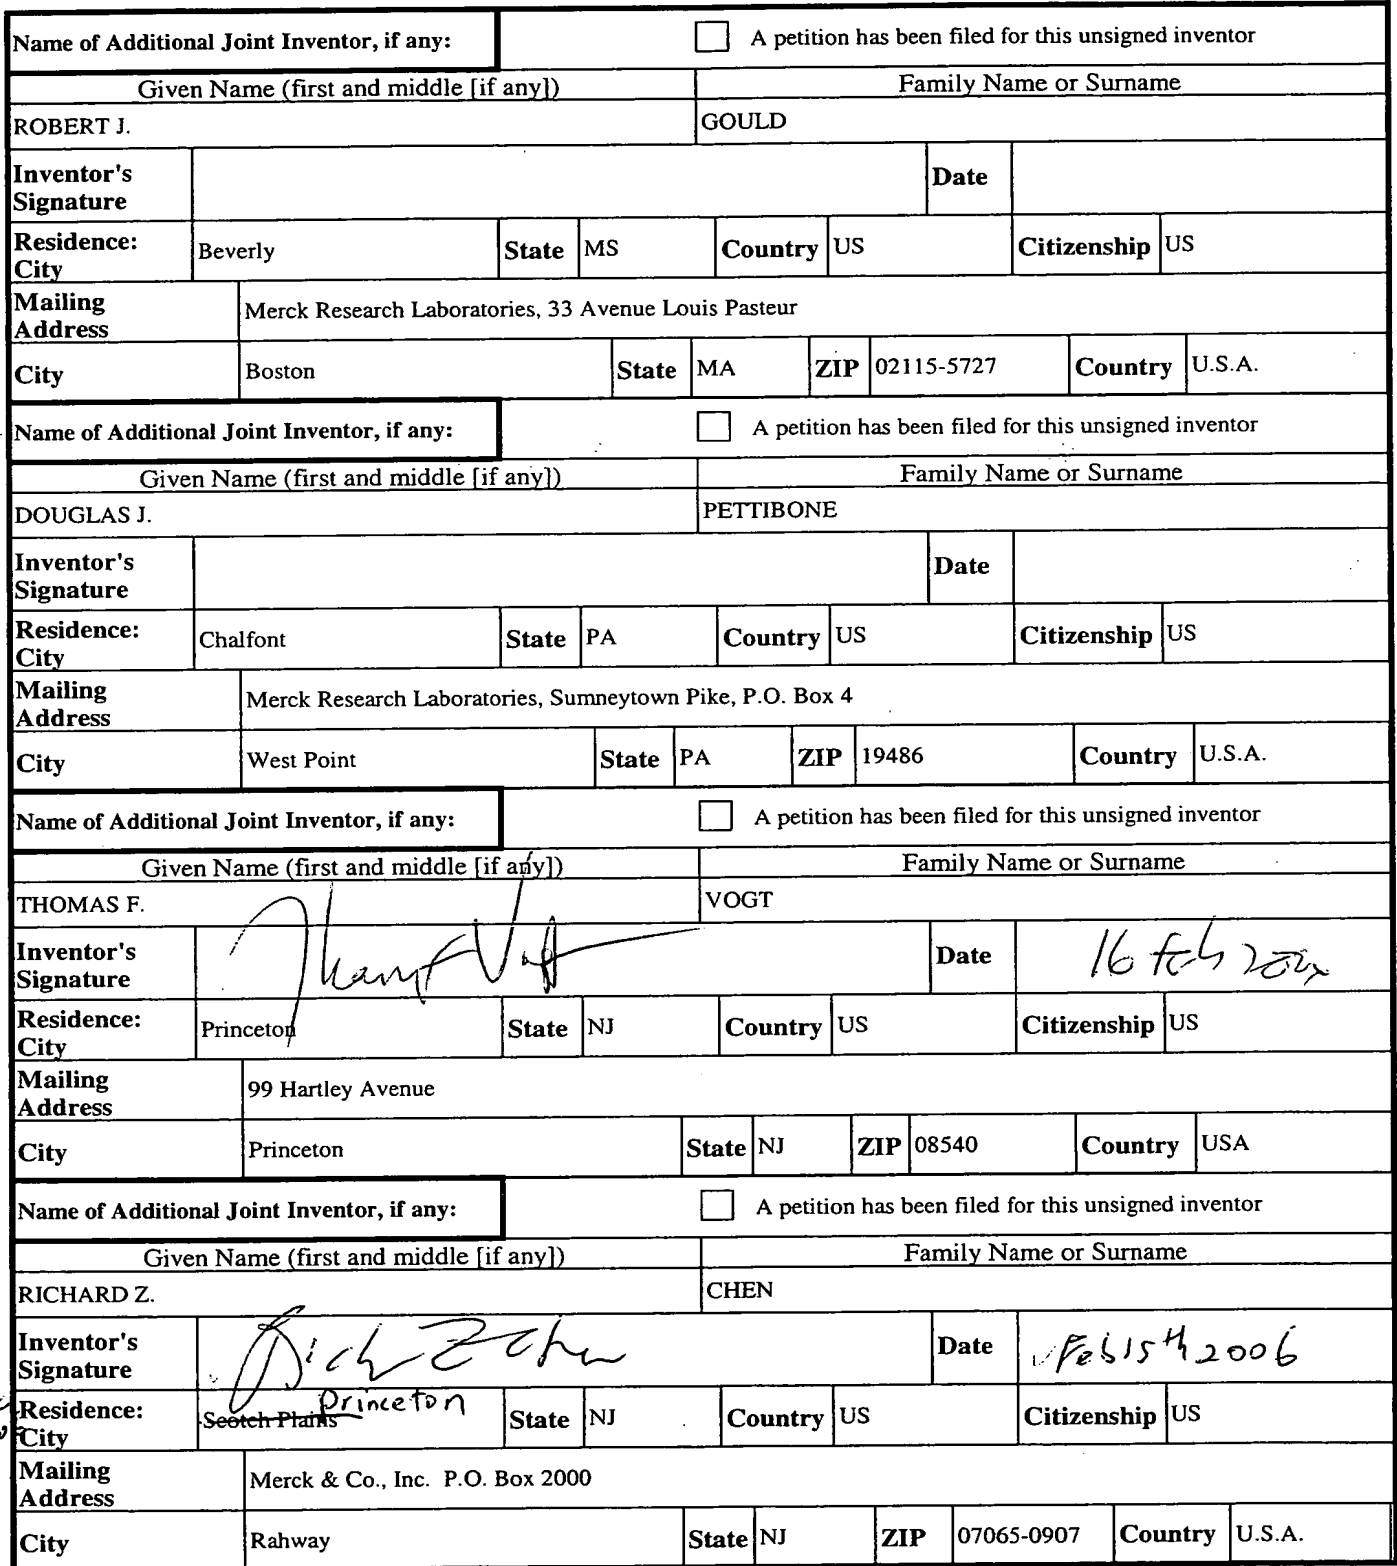 Name of Additional Joint Inventor, if any: A petition has been filed for this unsigned inventor
Given Name (first and middle [if any]) Family Name or Surname
ROBERT J. GOULD
Inventor's Signature Date
Residence: City Beverly State MS Country US Citizenship US
Mailing Address Merck Research Laboratories, 33 Avenue Louis Pasteur
City Boston State MA ZIP 02115-5727 Country U.S.A.
Name of Additional Joint Inventor, if any: A petition has been filed for this unsigned inventor
Given Name (first and middle [if any]) Family Name or Surname
DOUGLAS J. PETTIBONE
Inventor's Signature Date
Residence: City Chalfont State PA Country US Citizenship US
Mailing Address Merck Research Laboratories, Sumneytown Pike, P.O. Box 4
City West Point State PA ZIP 19486 Country U.S.A.
Name of Additional Joint Inventor, if any: A petition has been filed for this unsigned inventor
Given Name (first and middle [if any]) Family Name or Surname
THOMAS F. VOGT
Inventor's Signature Date 16 Feb
Residence: City Princeton State NJ Country US Citizenship US
Mailing Address 99 Hartley Avenue
City Princeton State NJ ZIP 08540 Country USA
Name of Additional Joint Inventor, if any: A petition has been filed for this unsigned inventor
Given Name (first and middle [if any]) Family Name or Surname
RICHARD Z. CHEN
Inventor's Signature Date Feb 15th 2006
Residence: City Scotch Plains Princeton State NJ Country US Citizenship US
Mailing Address Merck & Co., Inc. P.O. Box 2000
City Rahway State NJ ZIP 07065-0907 Country U.S.A.